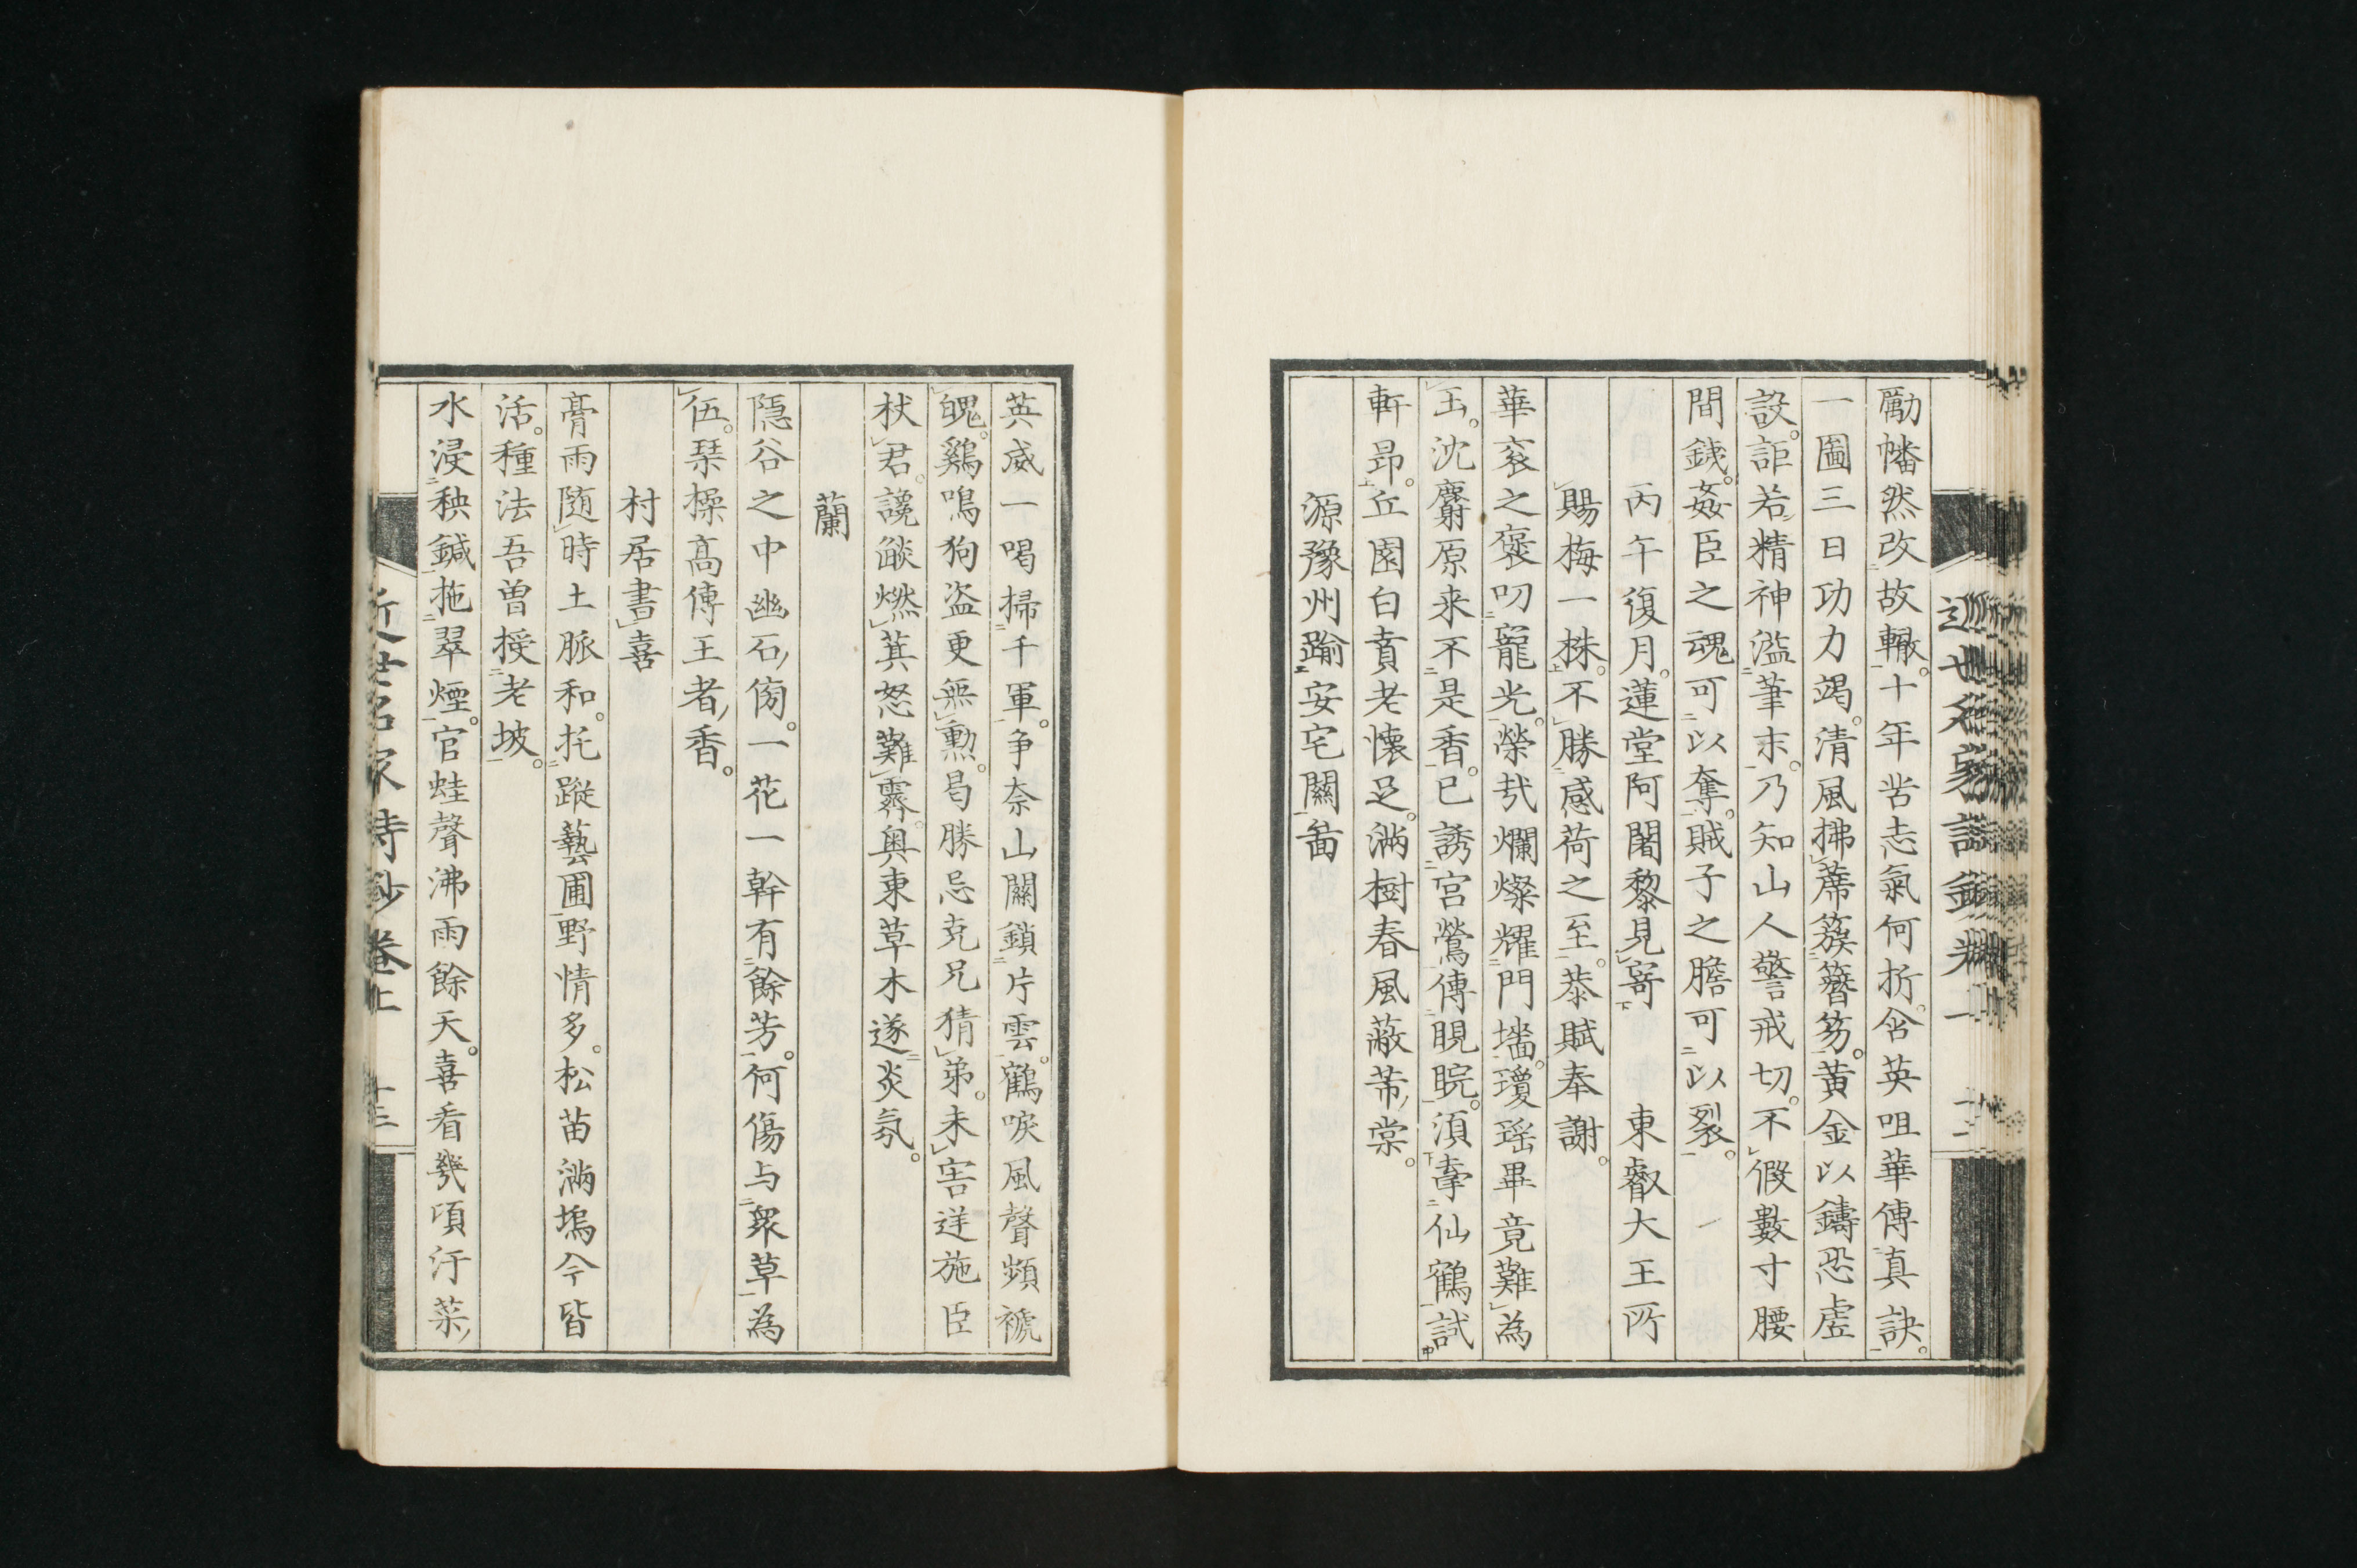 勵幡然改故轍。十年苦志氣何折。含英咀華傳真訣。
一圖三日功力竭。清風拂席簇簪笏。黃金以鑄恐虛
設。詎若精神溢筆末。乃知山人警戒切。不假數寸腰
間鐵。姦臣之魂可以奪。賊子之膽可以裂。
丙午復月。蓮堂阿闍黎見寄 東叡大王所
賜梅一株。不勝感荷之至。恭賦奉謝。
華衮之褒叨寵光。榮哉爛燦耀門墻。瓊瑤畢竟難為
玉。沈麝原来不是香。已誘宮鶯傳睍睆。須輋仙鶴試
軒昂。丘園白賁老懷足。滿樹春風蔽芾棠。
源豫州踰安宅關圖
英威一喝掃千軍。爭奈山關鎖片雲。鶴唳風聲頻褫
魄。鷄鳴狗盜更無勲。曷勝忌克兄猜弟。未害逆施臣
杖君。讒燄燃萁怒難霽。奥東草木遂炎氛。
蘭
隱谷之中幽石傍。一花一幹有餘芳。何傷与衆草為
伍。琹操高傳王者香。
村居書喜
膏雨隨時土脈和。托蹤藝圃野情多。松苗滿塢今皆
活。種法吾曽授老坡。
水浸秧鍼拖翠煙。官蛙聲沸雨餘天。喜看幾頃汙菜
近世名家詩鈔 卷上 十三